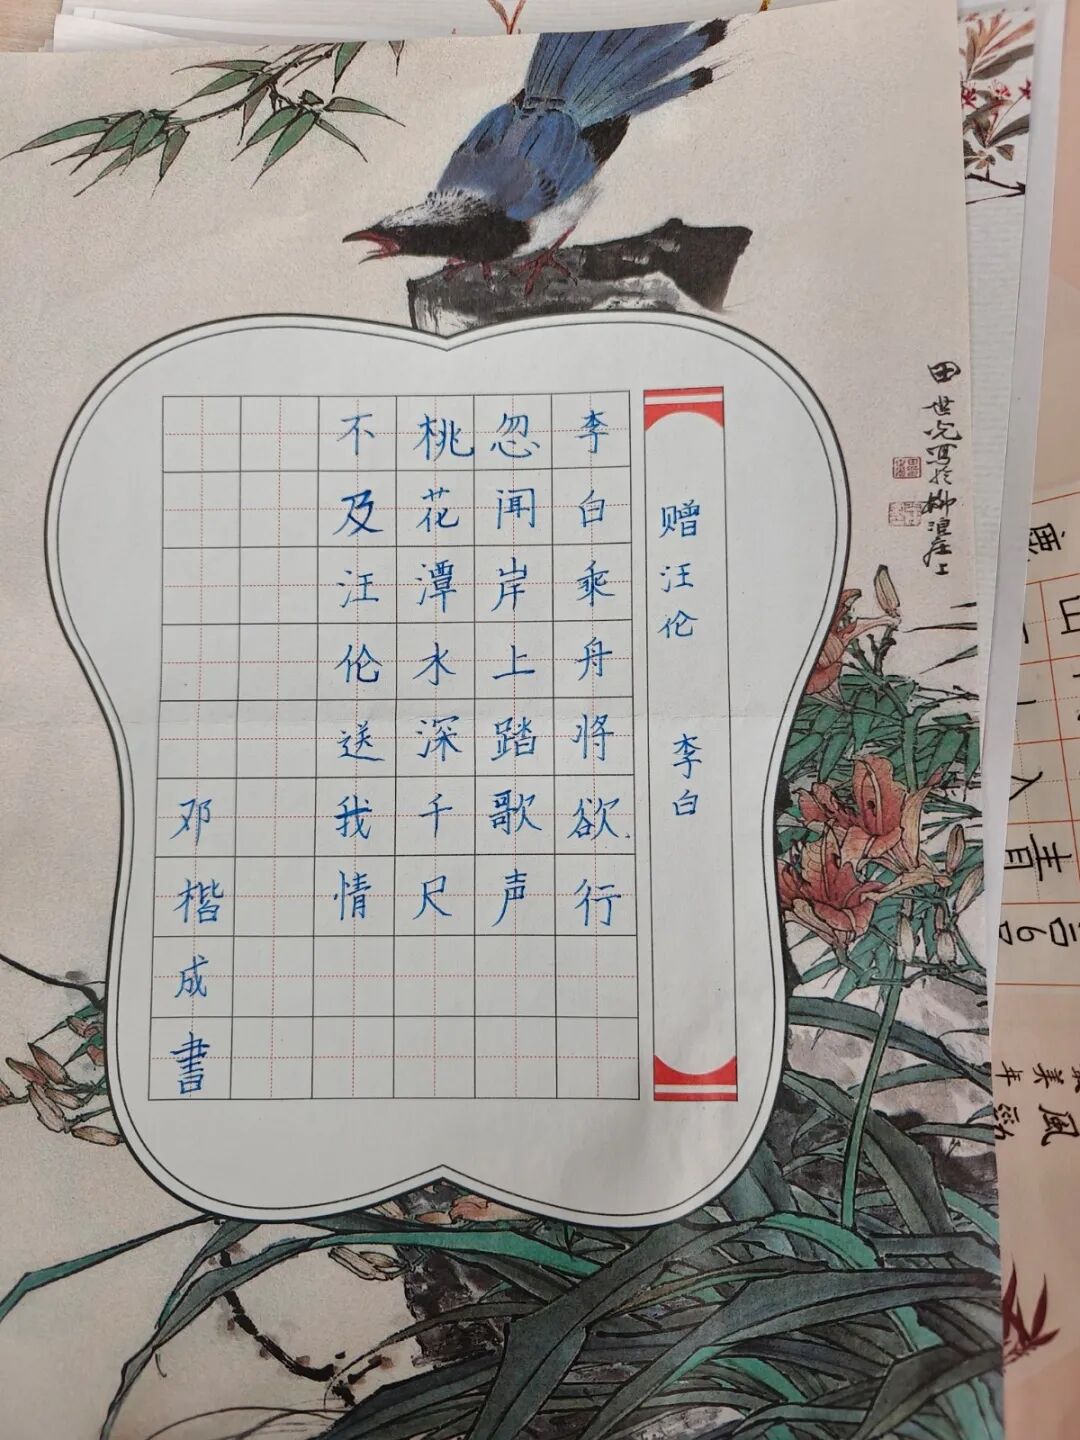 赠汪伦 李白
李白乘舟将欲行
忽闻岸上踏歌声
桃花潭水深千尺
不及汪伦送我情
邓楷成书
田世光写于柳浪庄上
人青
美年
風